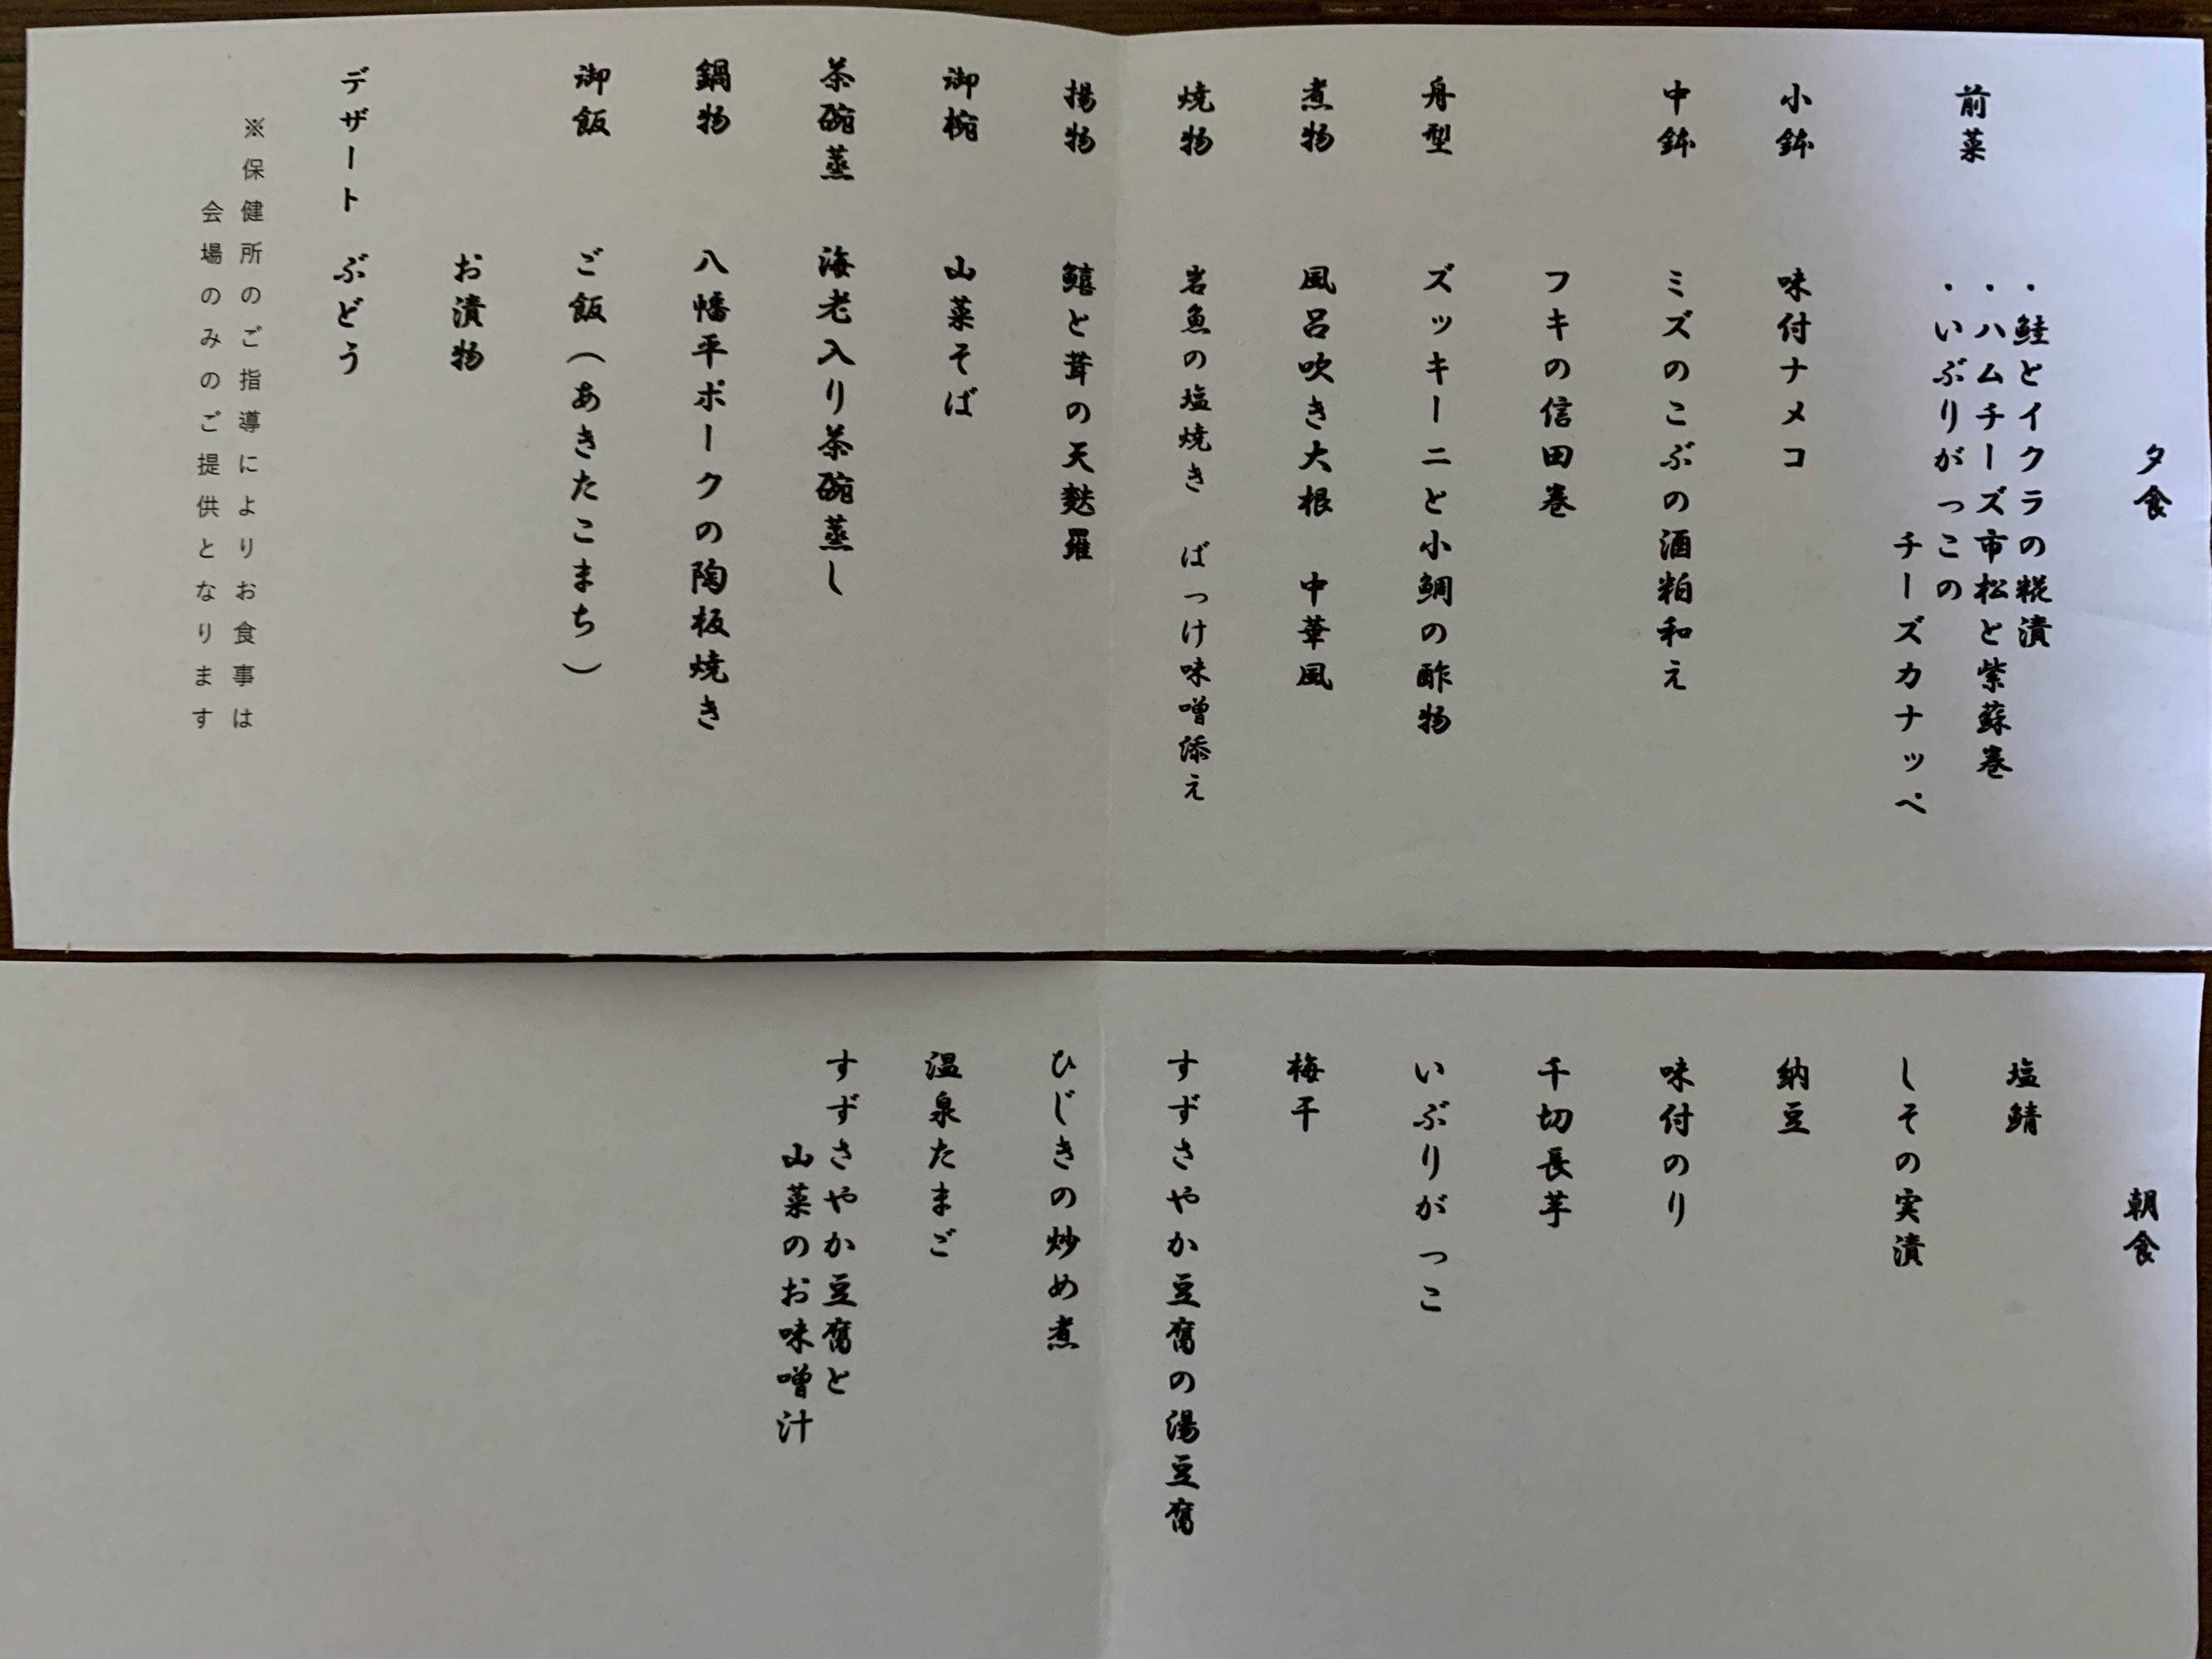 夕食
前菜
・鮭とイクラの糀漬
・ハムチーズ市松と紫蘇巻
・いぶりがっこの
チーズカナッペ
小鉢 味付ナメコ
中鉢 ミズのこぶの酒粕和え
フキの信田巻
舟型 ズッキーニと小鯛の酢物
煮物 風呂吹き大根 中華風
焼物 岩魚の塩焼き ばっけ味噌添え
揚物 鱚と茸の天麩羅
御椀 山菜そば
茶碗蒸 海老入り茶碗蒸し
鍋物 八幡平ポークの陶板焼き
御飯 ご飯(あきたこまち)
お漬物
デザート ぶどう
※保健所のご指導によりお食事は
会場のみのご提供となります
朝食
塩鯖
しその実漬
納豆
味付のり
千切長芋
いぶりがっこ
梅干
すずさやか豆腐の湯豆腐
ひじきの炒め煮
温泉たまご
すずさやか豆腐と
山菜のお味噌汁